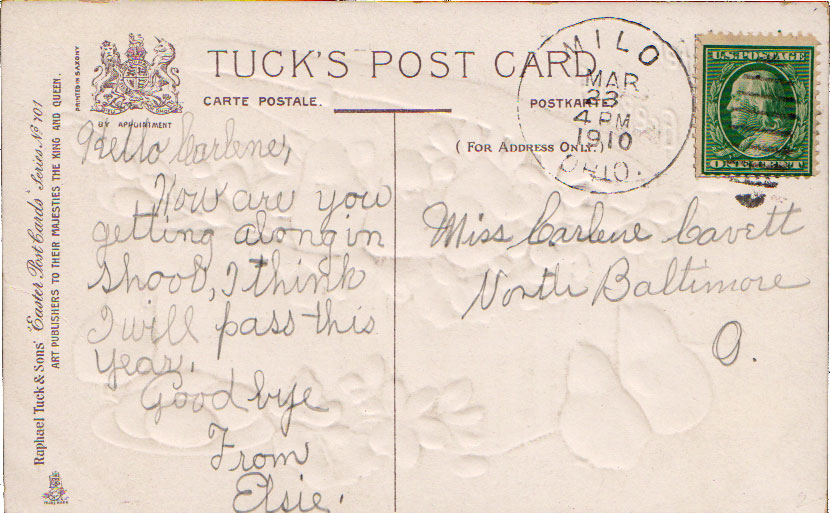 TUCK'S POST CARD
CARTE POSTALE.
POSTKARTE.
(For Address Only.)
BY APPOINTMENT
PRINTED IN SAXONY
Raphael Tuck & Sons' "Easter Post Cards" Series No 701
ART PUBLISHERS TO THEIR MAJESTIES THE KING AND QUEEN.
MILO
MAR
23
4 PM
1910
OHIO.
U.S. POSTAGE
Hello Carlene,
How are you
getting along in
shool, I think
I will pass this
year.
Good bye
From
Elsie.
Miss Carlene Cavett
North Baltimore
O.